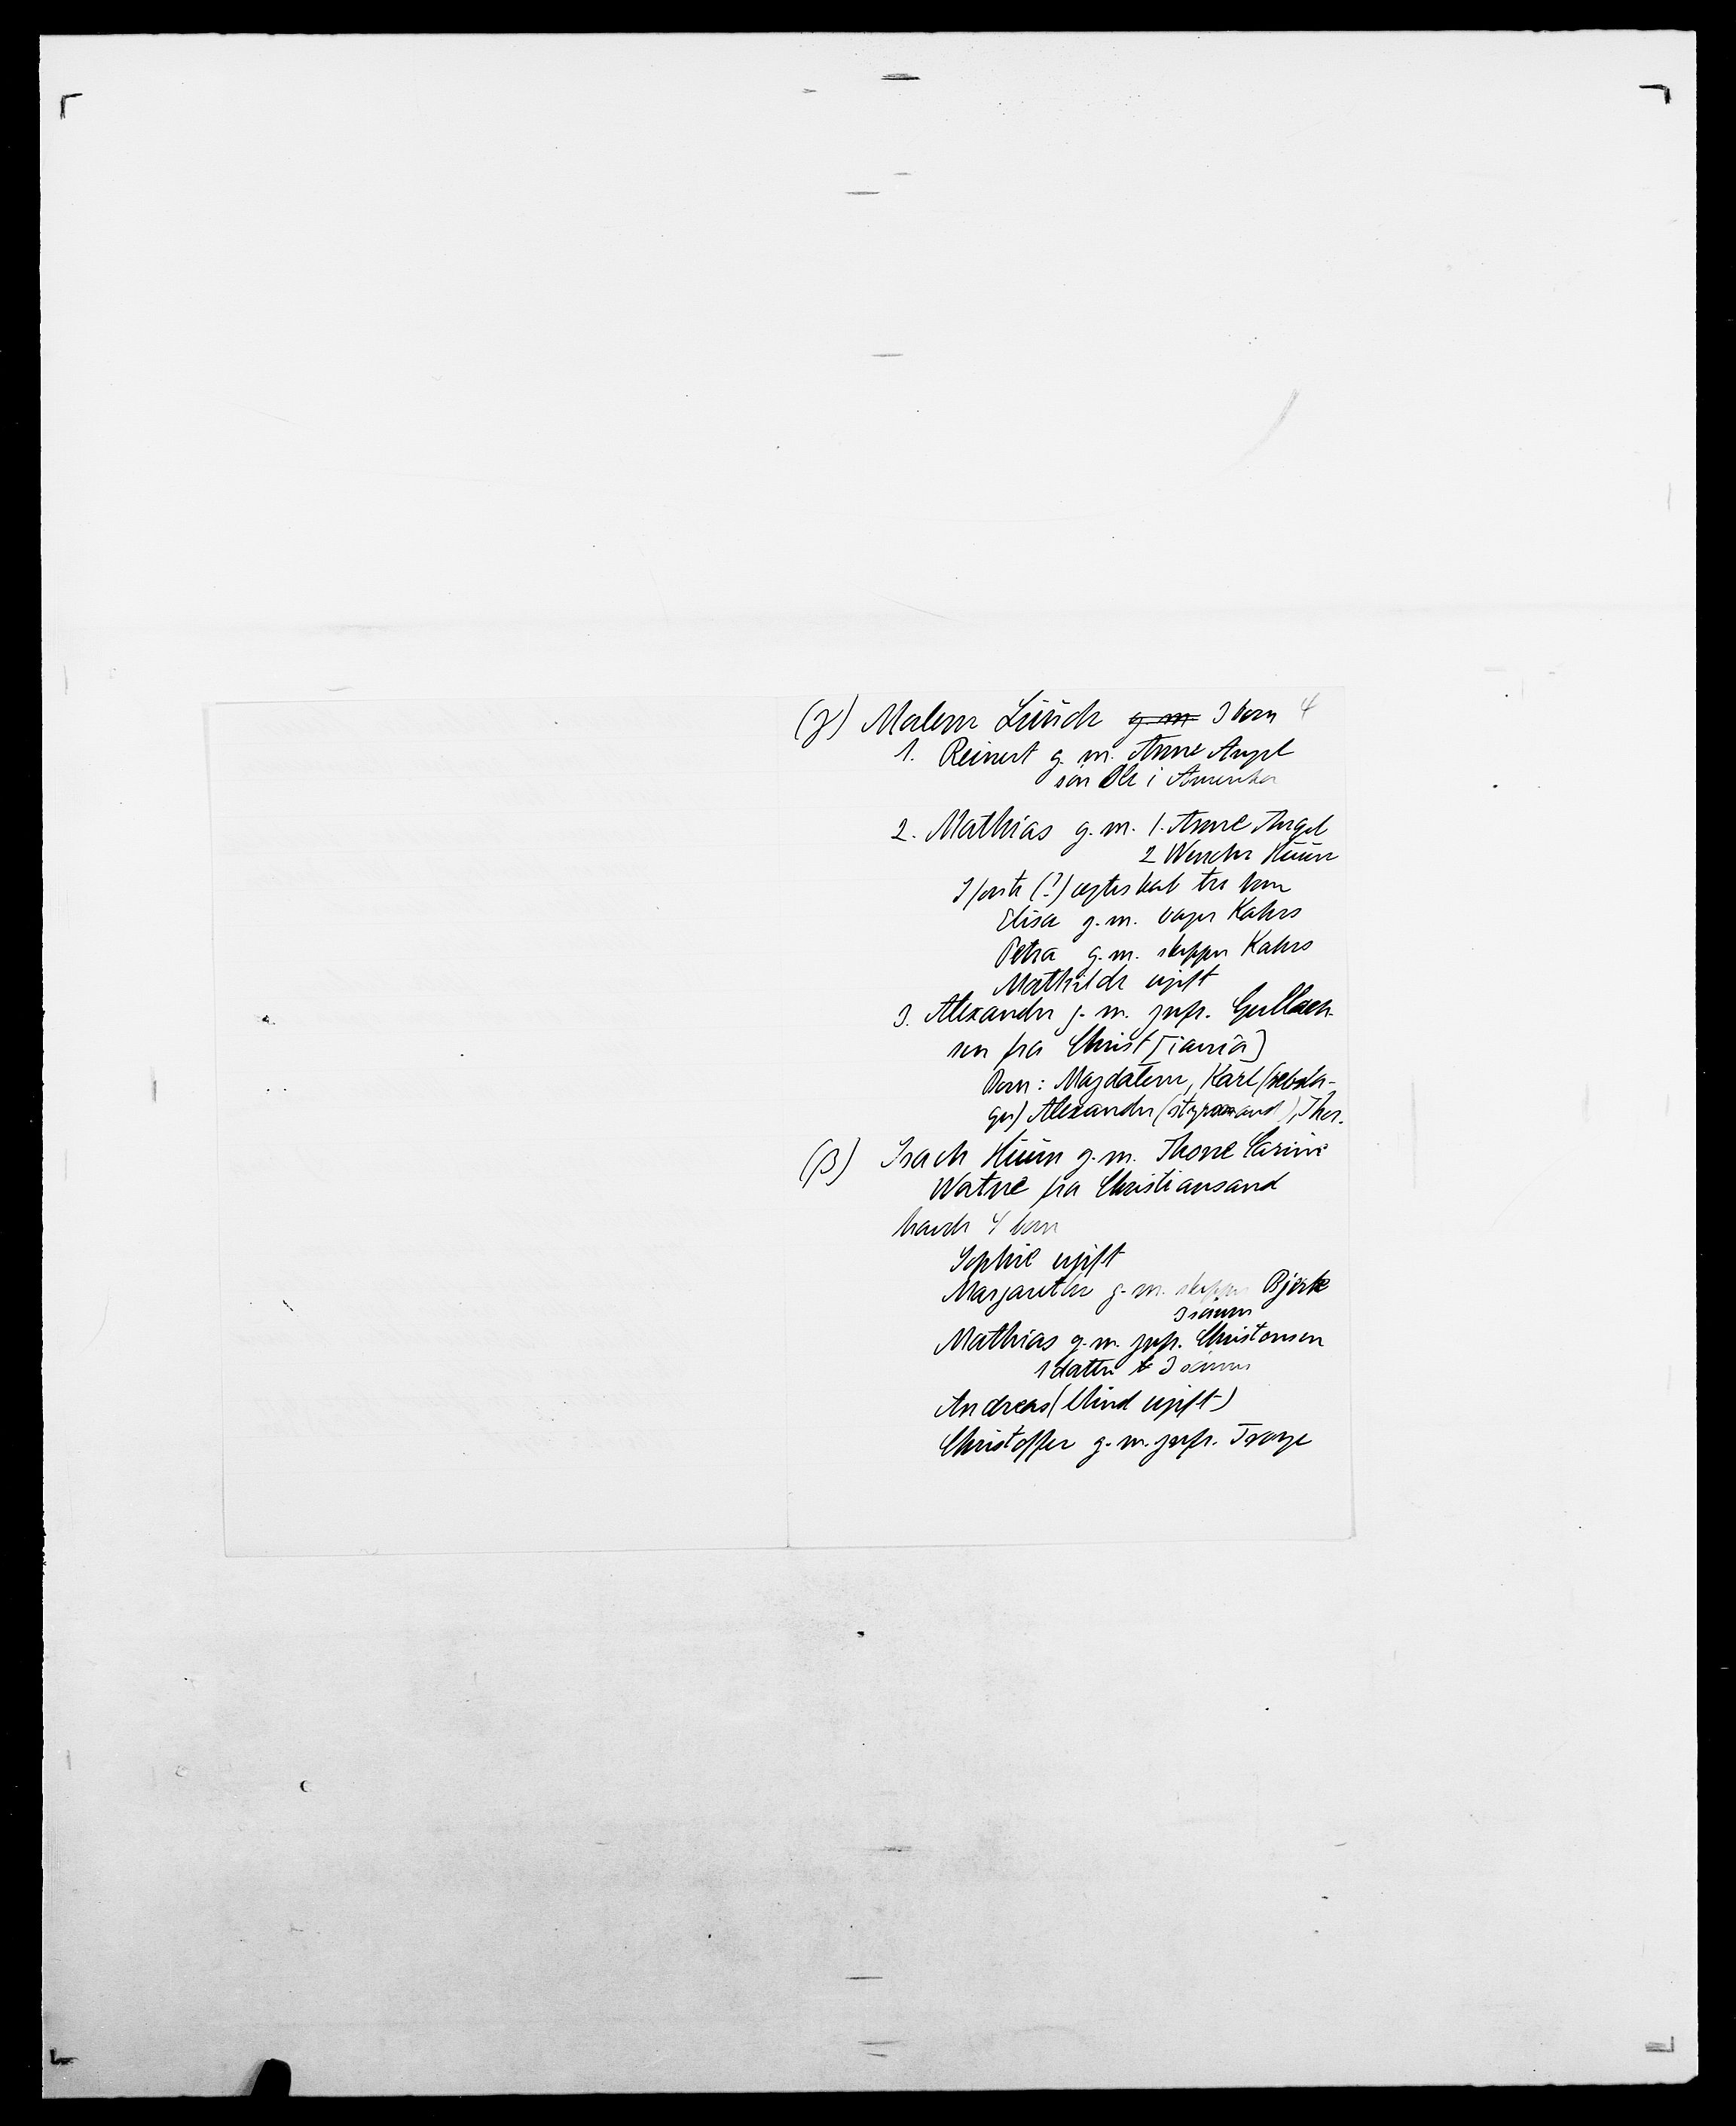 (γ) Malene Lüüde g. m. 3 børn 4
1. Reinert g. m. Anne Angel
søn Ole i Amerika
2. Mathias g. m. 1. Anne Angel
2 Wenche Huun
I første (?) ægteskab tre børn
Elisa g. m. bager Kahrs
Petra g. m. skipper Kahrs
Mathilde ugift
3. Alexander g. m. jnfr. Gullach-
sen fra Christ[iania]
Børn: Magdalene, Karl (rebsla-
ger) Alexander (styrmand), Ther.
(β) Isach Huun g. m. Thone Carine
Watne fra Christiansand
havde 4 børn
Sophie ugift
Margarethe g. m. skipper Bjerke
3 sønner
Mathias g. m. jnfr. Christensen
1 datter 3 sønner
Andreas (blind ugift)
Christoffer g. m. jnfr. Traye